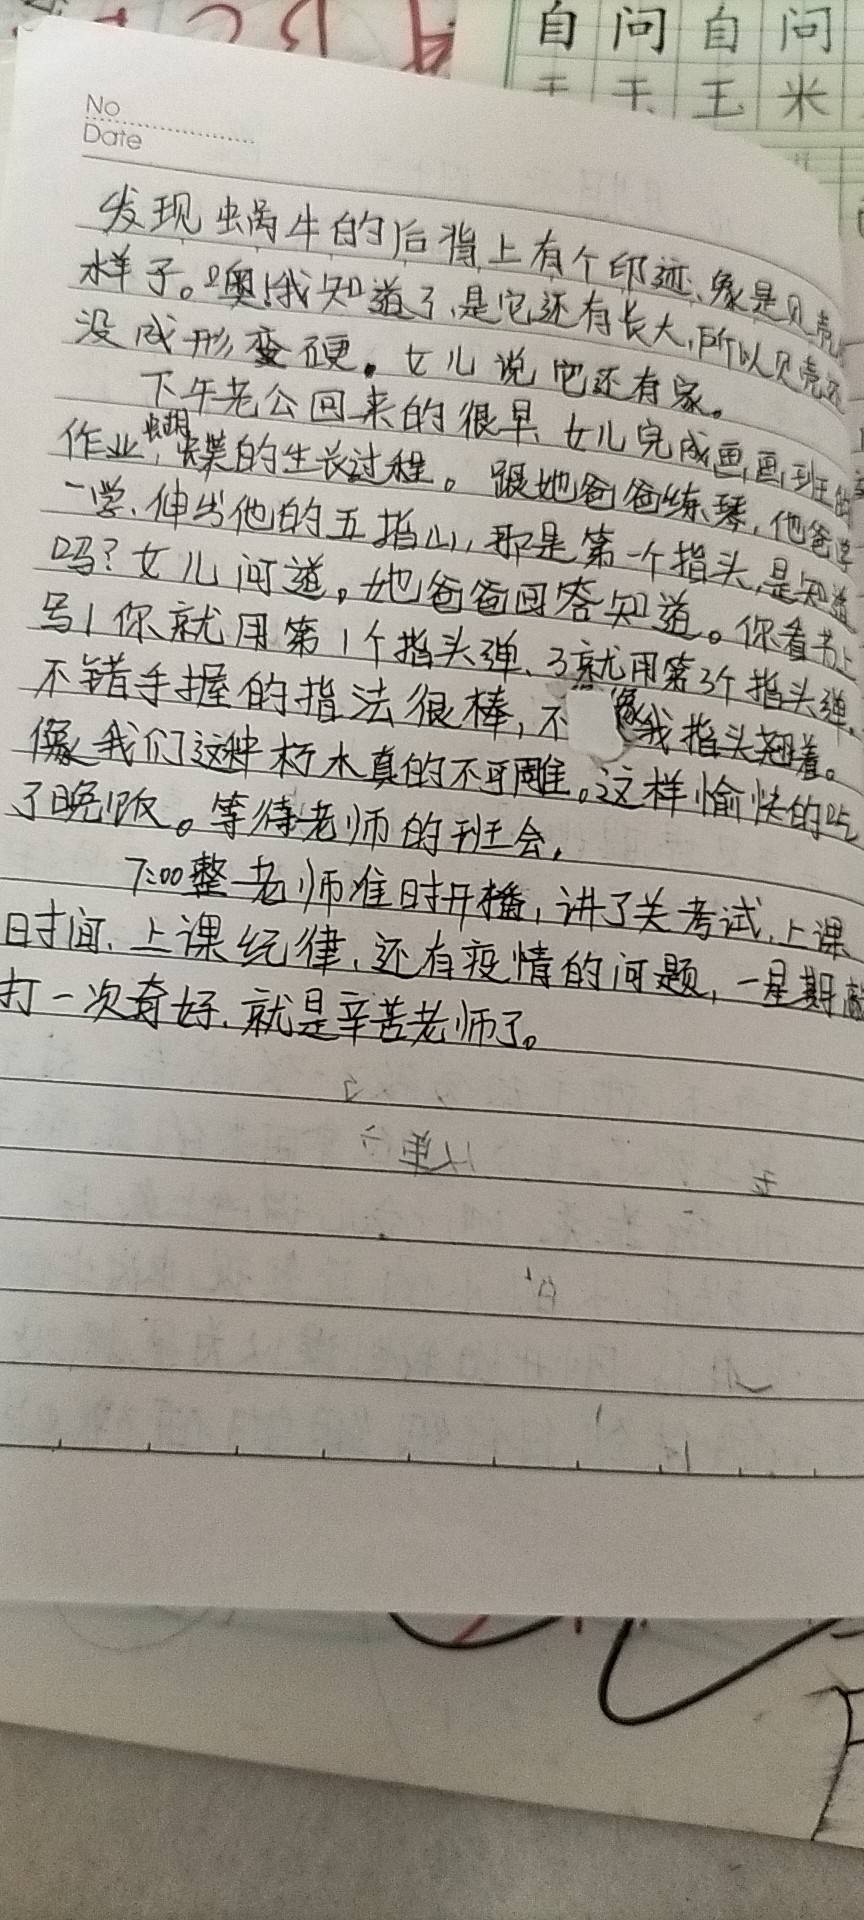 自问自问
王米
No
Date
发现蜗牛的后背上有个印迹、象是贝壳
样子。噢!我知道了,是它还有长大,所以贝壳
没成形变硬。女儿说它还有家。
下午老公回来的很早、女儿完成画画班的
作业,蝴蝶的生长过程。跟她爸爸练琴,他爸
一学、伸出他的五指山,那是第一个指头,是知道
吗?女儿问道。她爸爸回答知道。你看书上
写1你就用第1个指头弹、3就用第3个指头弹、
不错手握的指法很棒,不像我指头翘着。
像我们这种朽木真的不可雕。这样愉快的吃
了晚饭。等待老师的班会,
7:00整老师准时开播,讲了关考试、上课
时间、上课纪律、还有疫情的问题,一星期
打一次奇好、就是辛苦老师了。